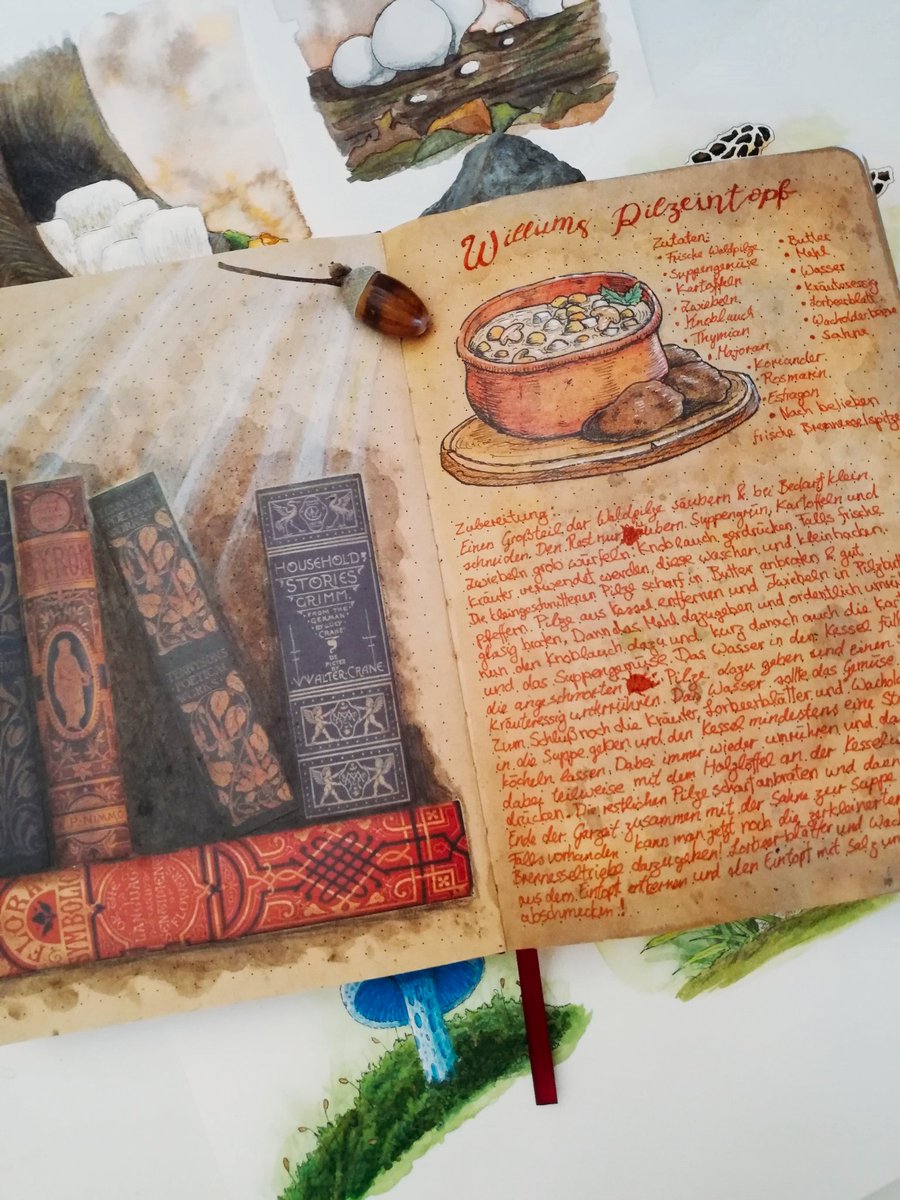 HOUSEHOLD
STORIES
GRIMM.
FROM THE
GERMAN
BY LUCY
CRANE
DE
PICTED
BY
WALTER·CRANE
P·NIMMO
FLORA
SYMBOLICA
Willums Pilzeintopf
Zutaten:
• Frische Waldpilze
• Suppengemüse
Kartoffeln
• Zwiebeln
• Knoblauch
• Thymian
• Majoran
• Koriander
• Rosmarin
• Estragon
• Nach belieben
frische Brennnesselspitze
• Butter
• Mehl
• Wasser
• Kräuteressig
• Lorbeerblatt
• Wacholderbeere
• Sahne
Zubereitung:
Einen Großteil der Waldpilze säubern & bei Bedarf klein
schneiden. Den Rest nur säubern. Suppengrün, Kartoffeln und
Zwiebeln grob würfeln. Knoblauch zerdrücken. Falls frische
Kräuter verwendet werden, diese waschen und kleinhacken.
Die kleingeschnittenen Pilze scharf in Butter anbraten & gut
pfeffern. Pilze aus Kessel entfernen und Zwiebeln in Pilzbutt
glasig braten. Dann das Mehl dazugeben und ordentlich
nun den Knoblauch dazu und kurz danach auch die Kar
und das Suppengemüse. Das Wasser in den Kessel füll
die angeschmorten Pilze dazu geben und einen
Kräuteressig unterrühren. Das Wasser sollte das Gemüse
Zum Schluß noch die Kräuter, Lorbeerblätter und Wachol
in die Suppe geben und den Kessel mindestens eine St
köcheln lassen. Dabei immer wieder umrühren und da
dabei teilweise mit dem Holzlöffel an der Kessel
drücken. Die restlichen Pilze scharf anbraten und dann
Ende der Garzeit zusammen mit der Sahne zur Suppe
Falls vorhanden kann man jetzt noch die zerkleinerten
Brennesseltriebe dazugeben! Lorbeerblätter und Wach
aus dem Eintopf entfernen und den Eintopf mit Salz un
abschmecken!